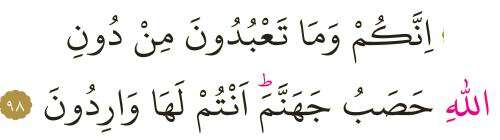 اِنَّكُمْ وَمَا تَعْبُدُونَ مِنْ دُونِ
اللّٰهِ حَصَبُ جَهَنَّمَۜ اَنْتُمْ لَهَا وَارِدُونَ ﴿٩٨﴾